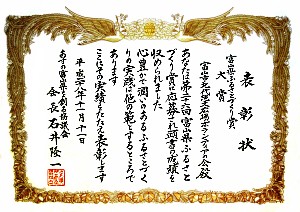 表彰状
富山県ふるさとづくり賞
大賞
あなたは第二十六回富山県ふるさと
づくり賞に応募され頭書の成績を
収められました
心豊かで潤いのあるふるさとづく
りの実践は他の範とするところで
あります
これをその実績をたたえ表彰します
平成二十六年十一月十一日
あすの富山県を創る協議会
会長 石井隆一